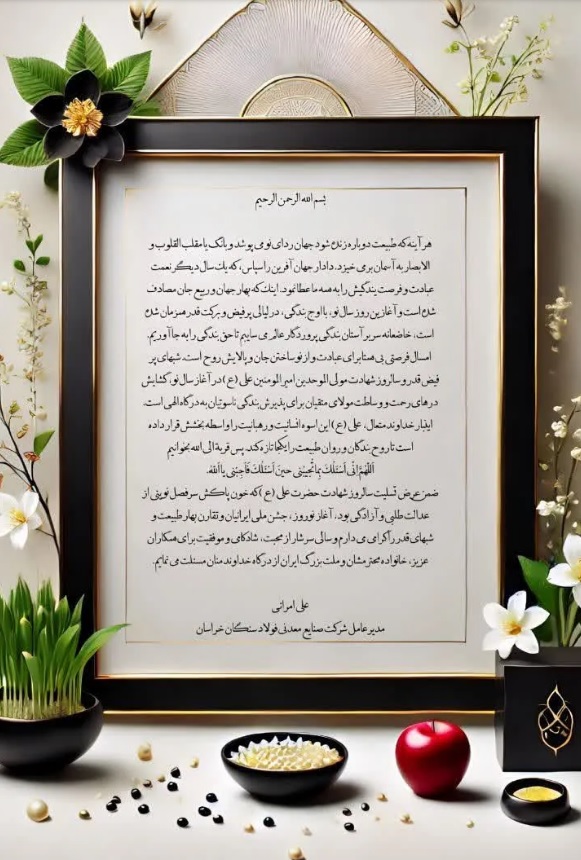 بسم الله الرحمن الرحیم
هر آینه که طبیعت دوباره زنده شود جهان ردای نو می پوشد و بانگ یا مقلب القلوب و
الابصار به آسمان بر می خیزد. دادار جهان آفرین را سپاس، که یک سال دیگر نعمت
عبادت و فرصت بندگیش را به همه ما عطا نمود. اینک که بهار جهان و ربیع جان مصادف
شده است و آغازین روز سال نو، با اوج بندگی، در لیالی پر فیض و برکت قدر همزمان شده
است، خاضعانه سر بر آستان بندگی پروردگار عالم می ساییم تا حق بندگی را به جا آوریم.
امسال فرصتی بی همتا برای عبادت و از نو ساختن جان و پالایش روح است. شبهای پر
فیض قدر و سالروز شهادت مولی الموحدین امیرالمومنین علی (ع) در آغاز سال نو، گشایش
درهای رحمت و وساطت مولای متقیان برای پذیرش بندگی ناسوتیان به درگاه الهی است.
ایقبار خداوند متعال، علی (ع) این اسوه انسانیت و رهبانیت را واسطه بخشش قرار داده
است تا روح بندگان و روان طبیعت را یکجا تازه کند. پس قربة الی الله بخوانیم
اَللّهُمَّ اِنّی اَسئَلُکَ بِما تُجیبُنی حینَ اَسئَلُکَ فَاَجِبنی یا اَللهُ.
ضمن عرض تسلیت سالروز شهادت حضرت علی (ع) که خون پاکش سرفصل نوینی از
عدالت طلبی و آزادگی بود، آغاز نوروز، جشن ملی ایرانیان و تقارن بهار طبیعت و
شبهای قدر را گرامی می دارم و سالی سرشار از محبت، شادکامی و موفقیت برای همکاران
عزیز، خانواده محترمشان و ملت بزرگ ایران از درگاه خداوند منان مسئلت می نمایم.
علی امرانی
مدیر عامل شرکت صنایع معدنی فولاد سنگان خراسان